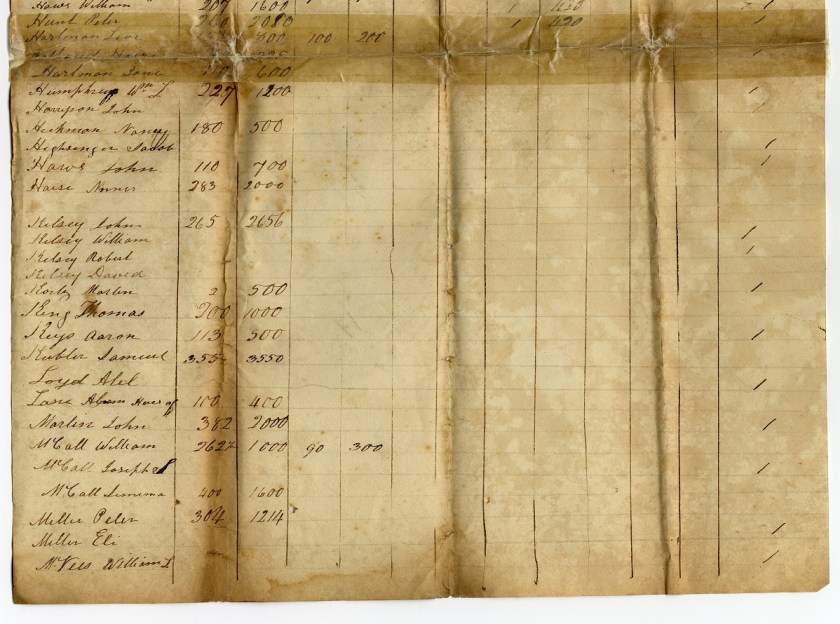 Haws William " 207 1600 1 420 1
Hunt Peter 260 2080 1 420
Hartman 800 100 200
Hartman Jane 600
Humphrey Wm L 227 1200 1
Harrison John
Hickman Nancy 180 500
Highsinger Jacob 1
Haws John 110 700 1
283 2000
Kelsey John 265 2656
Kelsey William 1
Kelsey Robert 1
Kelsey David
Martin 2 500 1
King Thomas 200 1000
Keys Aaron 113 500 1
Kubler Samuel 355 3550
Loyd Abel 1
Lane Heirs of 100 400
Martin John 382 2000 1
McCall William 262 1000 90 300
McCall Joseph S 1
McCall 400 1600
Miller Peter 304 1214
Miller Eli 1
William L 1